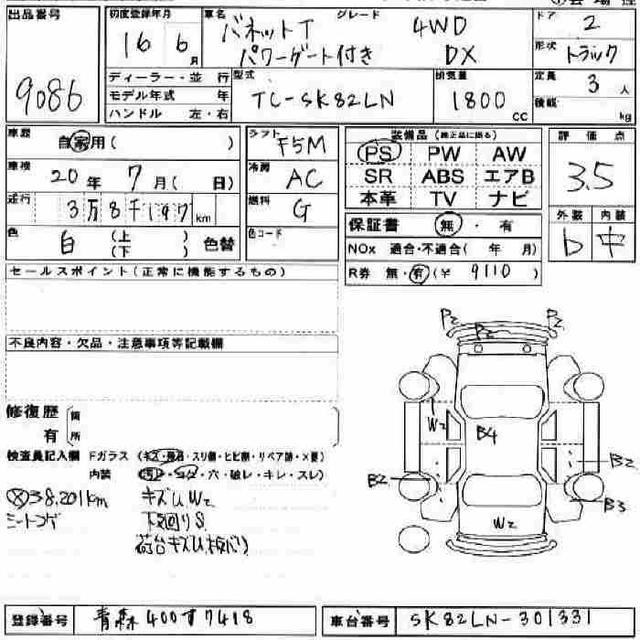 出品番号 初度登録年月 車名 グレード ドア
9086 16 6月 バネットT 4WD 2
パワーゲート付き DX 形状 トラック
ディーラー・並行 型式 排気量 定員 3人
モデル年式 年 TC-SK82LN 1800cc 積載 kg
ハンドル 左・右
車歴 自家用( ) シフト F5M 装備品(純正品に限る) 評価点
車検 20年7月(日) 冷房 AC PS PW AW 3.5
走行 3万8千197km 燃料 G SR ABS エアB
本革 TV ナビ
色 白 (上)(下) 色替 色コード 保証書 無・有 外装 b 内装 中
NOx 適合・不適合( 年 月)
R券 無・有(¥ 9110)
セールスポイント(正常に機能するもの)
不良内容・欠品・注意事項等記載欄
修復歴 有 箇所
検査員記入欄 Fガラス(キズ・飛石・スリ傷・ヒビ割・リペア跡・×要)
内装(汚レ・コゲ・穴・破レ・キレ・スレ)
38,201km キズU W2
シートコゲ 下回りS
荷台キズU
P2 P2 P2
W2 B4
B2 B2
B3
W2
登録番号 青森 400す7418 車台番号 SK82LN-301331